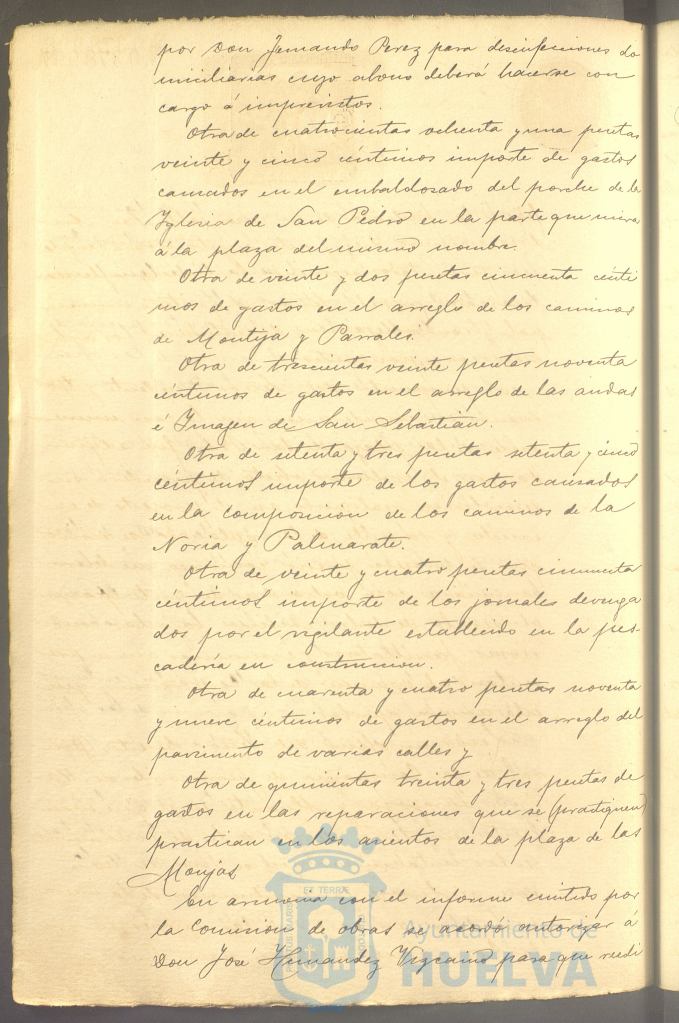 por Don Fernando Perez para desinfecciones do
miciliarias cuyo abono deberá hacerse con
cargo á imprevistos.
Otra de cuatrocientas ochenta y una pesetas
veinte y cinco céntimos importe de gastos
causados en el embaldosado del porche de la
Yglesia de San Pedro en la parte que mira
á la plaza del mismo nombre.
Otra de veinte y dos pesetas cincuenta cénti
mos de gastos en el arreglo de los caminos
de Montija y Parrales.
Otra de trescientas veinte pesetas noventa
céntimos de gastos en el arreglo de las andas
é Imagen de San Sebastian.
Otra de setenta y tres pesetas setenta y cinco
céntimos importe de los gastos causados
en la composicion de los caminos de la
Noria y Palmarate.
Otra de veinte y cuatro pesetas cincuenta
céntimos importe de los jornales devenga
dos por el vigilante establecido en la pes-
cadería en construccion.
Otra de cuarenta y cuatro pesetas noventa
y nueve céntimos de gastos en el arreglo del
pavimento de varias calles y
Otra de quinientas treinta y tres pesetas de
gastos en las reparaciones que se (practiquen)
practican en los asientos de la plaza de las
Monjas
En armonia con el informe emitido por
la Comision de obras se acordó autorizar á
Don José Hernandez Vizcaino para que
ET TERRÆ
Ayuntamiento de
HUELVA